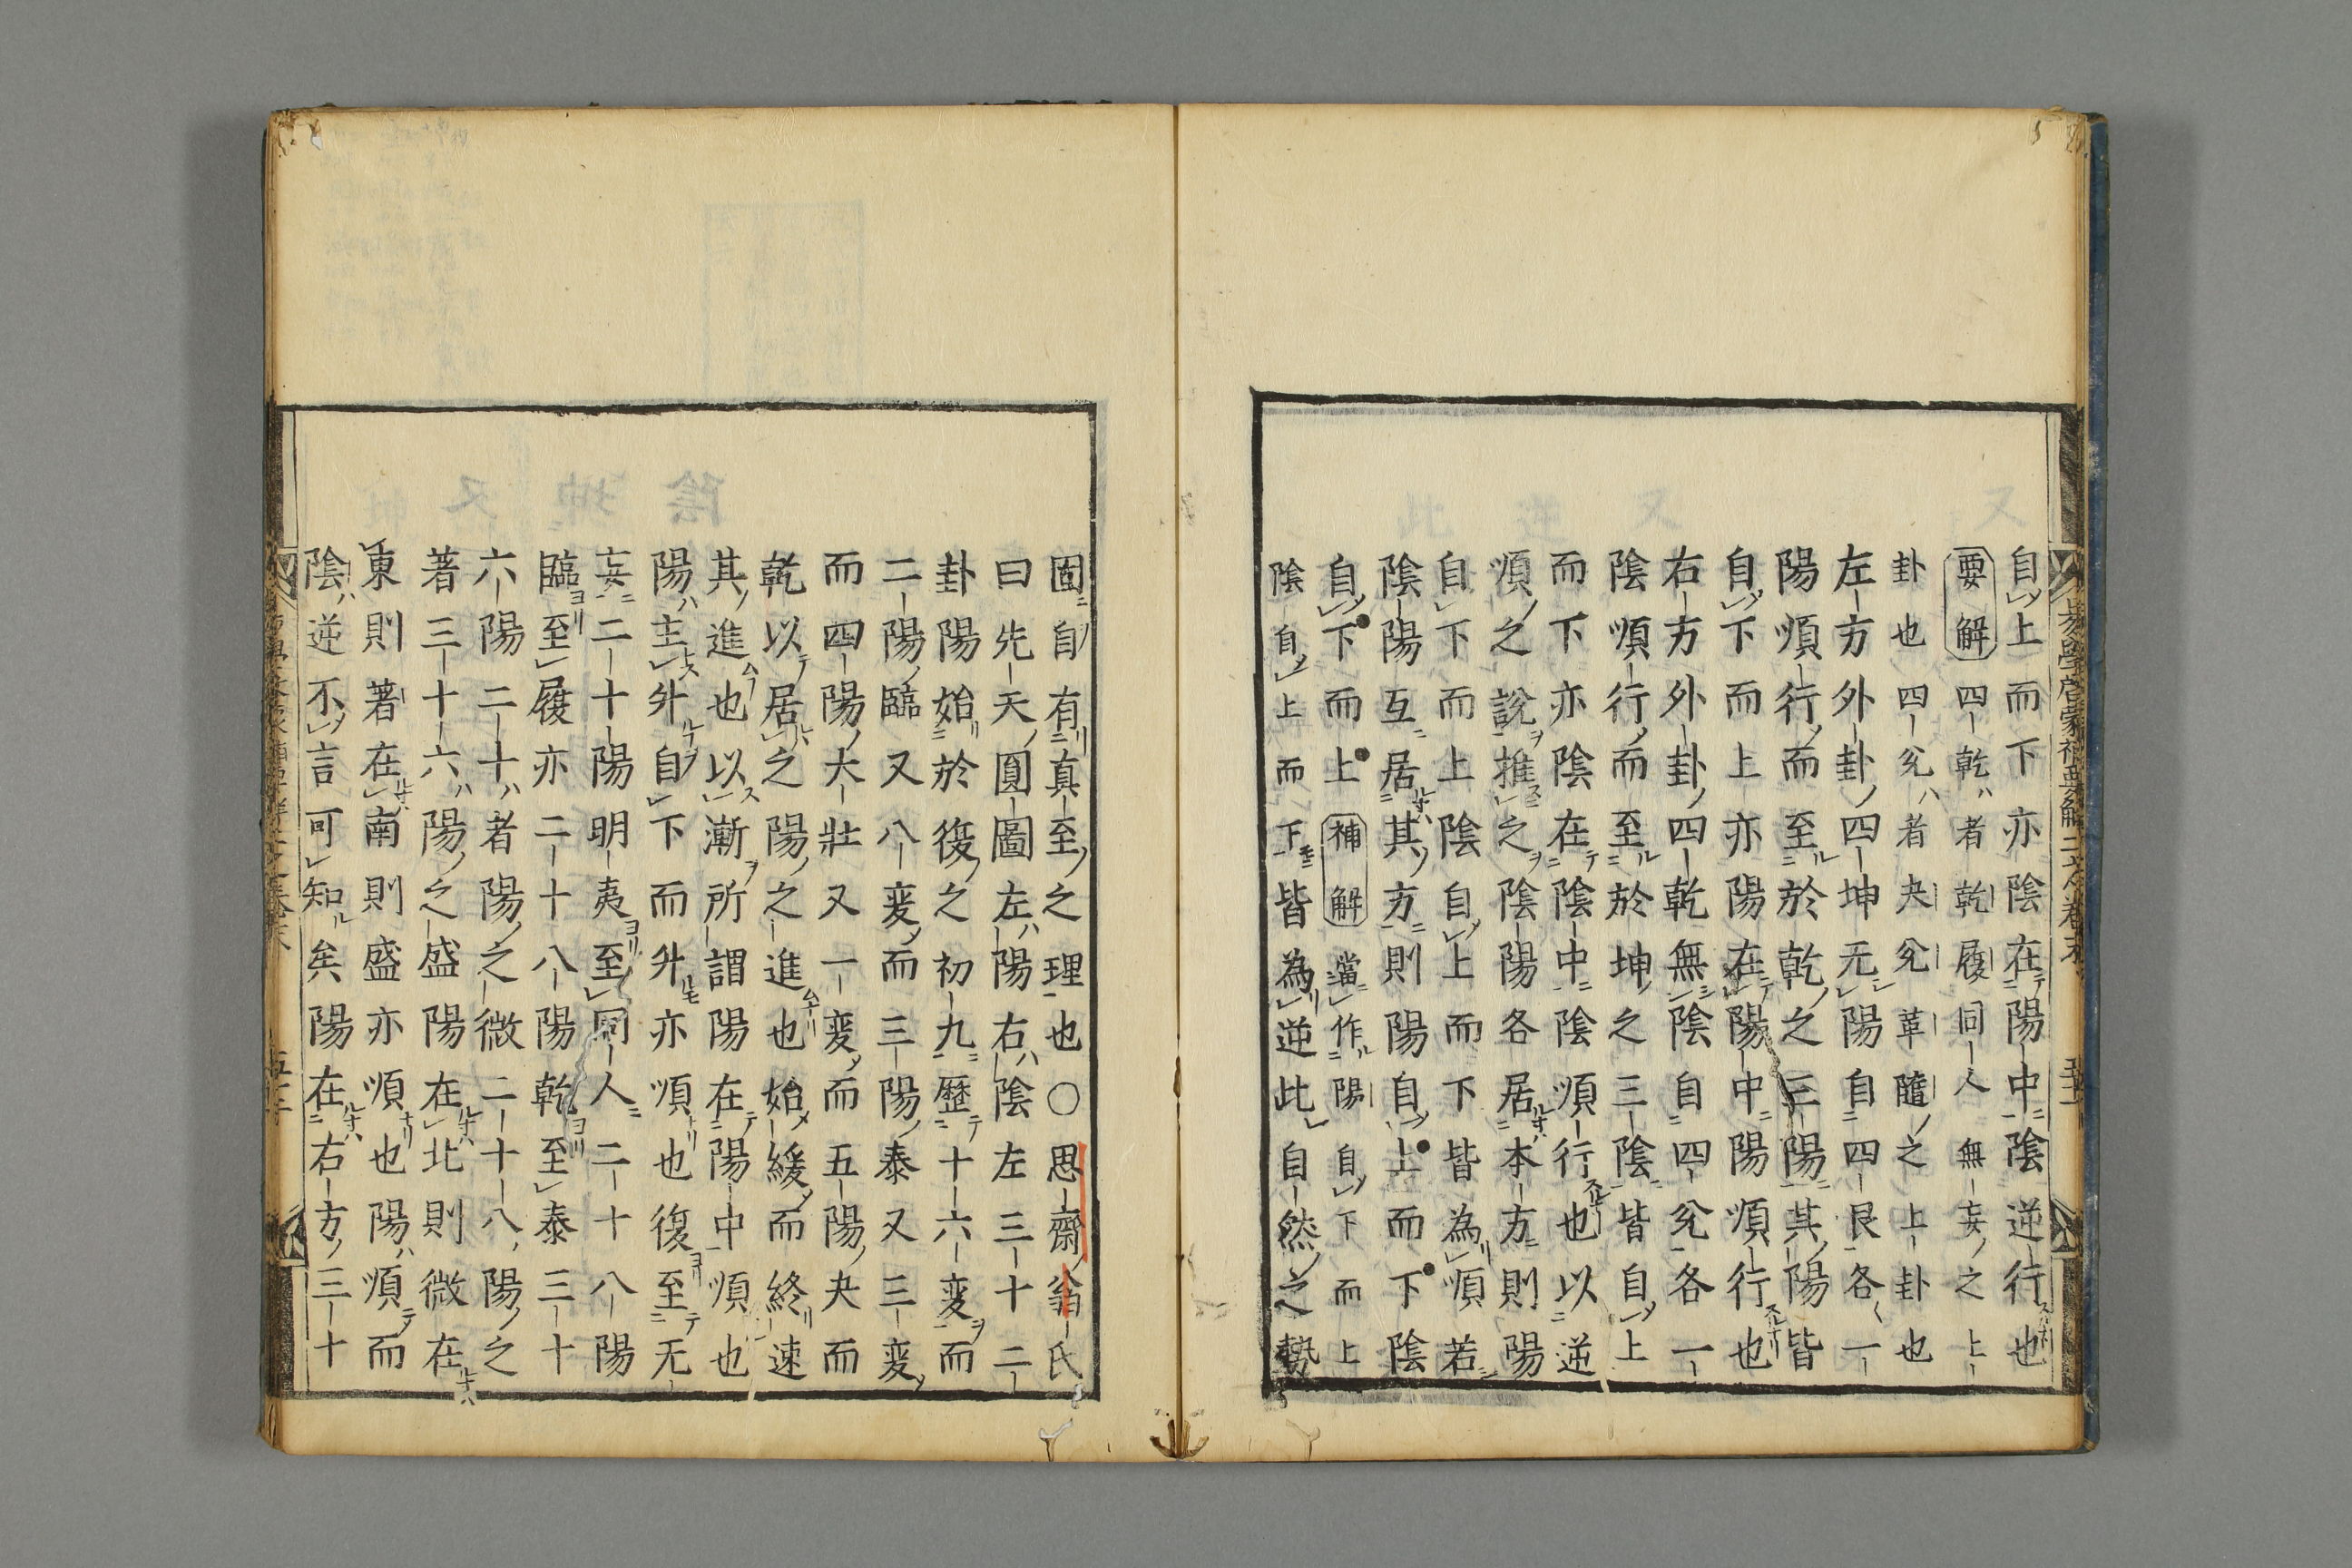 自上而下亦陰在陽中陰逆行也
要解四乾者乾履同人無妄之上
卦也四兊者夬兊革隨之上卦也
左方外卦四坤无陽自四艮各一
陽順行而至於乾之三陽其陽皆
自下而上亦陽在陽中陽順行也
右方外卦四乾無陰自四兊各一
陰順行而至於坤之三陰皆自上
而下亦陰在陰中陰順行也以逆
順之說推之陰陽各居本方則陽
自下而上陰自上而下皆為順若
陰陽互居其方則陽自上而下陰
自下而上補解當作陽自下而上
陰自上而下皆為逆此自然之勢
固自有真至之理也○思齋翁氏
曰先天圓圖左陽右陰左三十二
卦陽始於復之初九歷十六変而
二陽臨又八変而三陽泰又三変
而四陽大壯又一変而五陽夬而
乾以居之陽之進也始緩而終速
其進也以漸所謂陽在陽中順也
陽主升自下而升亦順也復至无
妄二十陽明夷至同人二十八陽
臨至履亦二十八陽乾至泰三十
六陽二十者陽之微二十八陽之
著三十六陽之盛陽在北則微在
東則著在南則盛亦順也陽順而
陰逆不言可知矣陽在右方三十